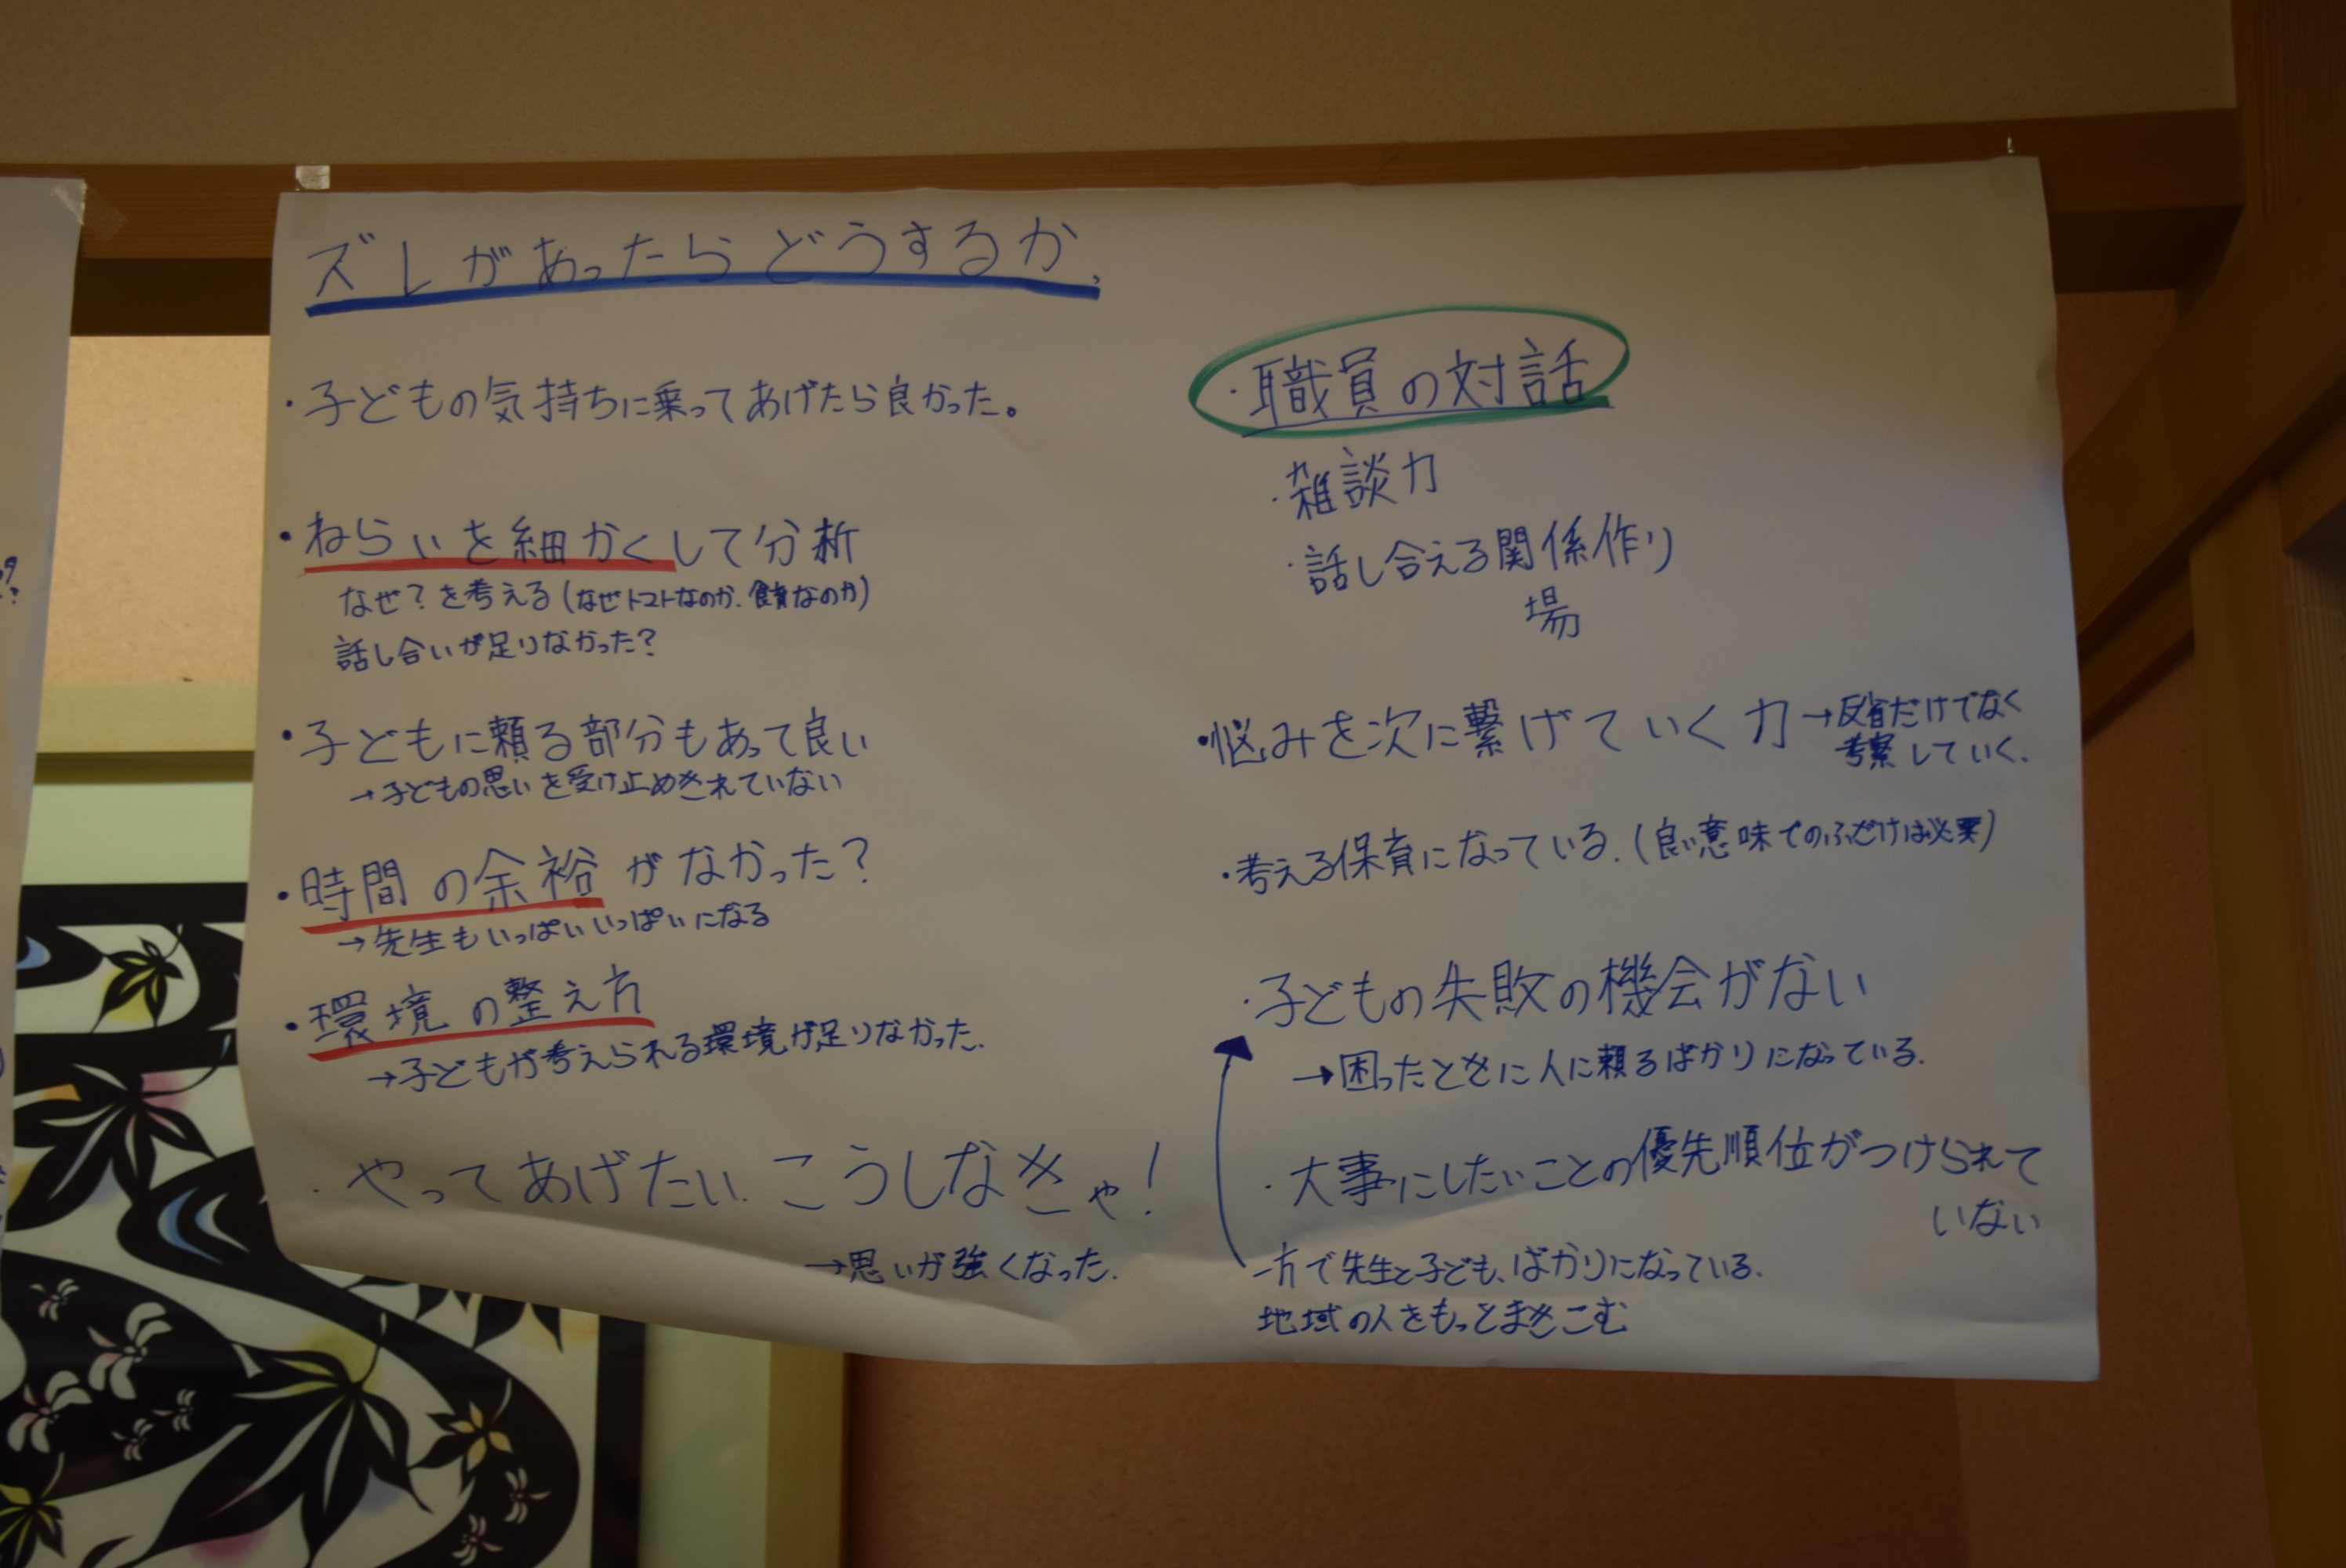 ズレがあったらどうするか、
・子どもの気持ちに乗ってあげたら良かった。
・ねらいを細かくして分析
なぜ?を考える(なぜトマトなのか、食育なのか)
話し合いが足りなかった?
・子どもに頼る部分もあって良い
→子どもの思いを受け止めきれていない
・時間の余裕がなかった?
→先生もいっぱいいっぱいになる
・環境の整え方
→子どもが考えられる環境が足りなかった。
・やってあげたい、こうしなきゃ!
→思いが強くなった。
・職員の対話
・雑談力
・話し合える関係作り
場
・悩みを次に繋げていく力→反省だけでなく
考察していく。
・考える保育になっている。(良い意味でのふざけは必要)
・子どもの失敗の機会がない
→困ったときに人に頼るばかりになっている。
・大事にしたいことの優先順位がつけられて
いない
一方で先生と子ども、ばかりになっている。
地域の人をもっとまきこむ